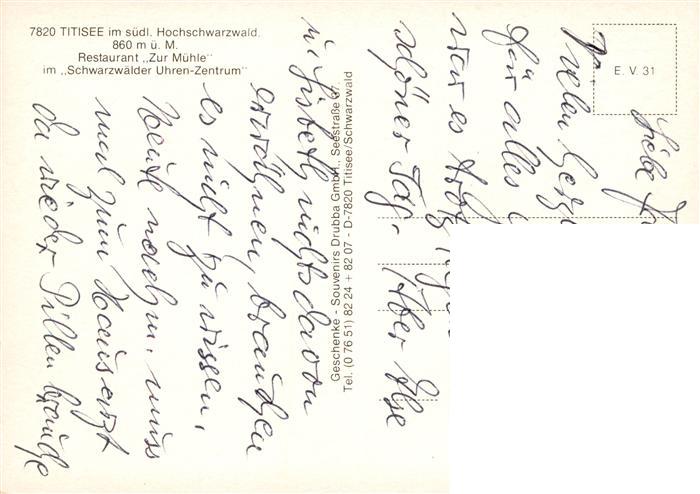 7820 TITISEE im südl. Hochschwarzwald.
860 m ü. M.
Restaurant „Zur Mühle"
im „Schwarzwälder Uhren-Zentrum"
E. V. 31
Geschenke - Souvenirs Drubba GmbH., Seestraße 37
Tel. (0 76 51) 82 24 + 82 07 - D-7820 Titisee/Schwarzwald
Liebe
vielen
für alles
war es
schöner Tag. Aber Ilse
u. Lisbeth nichts davon
erwähnen, brauchen
es nicht zu wissen.
Heute nachm. muss
mal zum Hausarzt
da wieder Pillen brauche